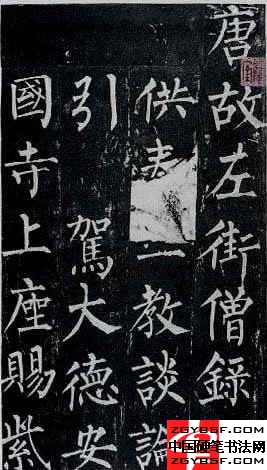 唐故左街僧錄
供 教談論
引 駕大德安
國寺上座賜紫
ZGYBSF.COM
中国硬笔书法网
ZGYBSF.COM